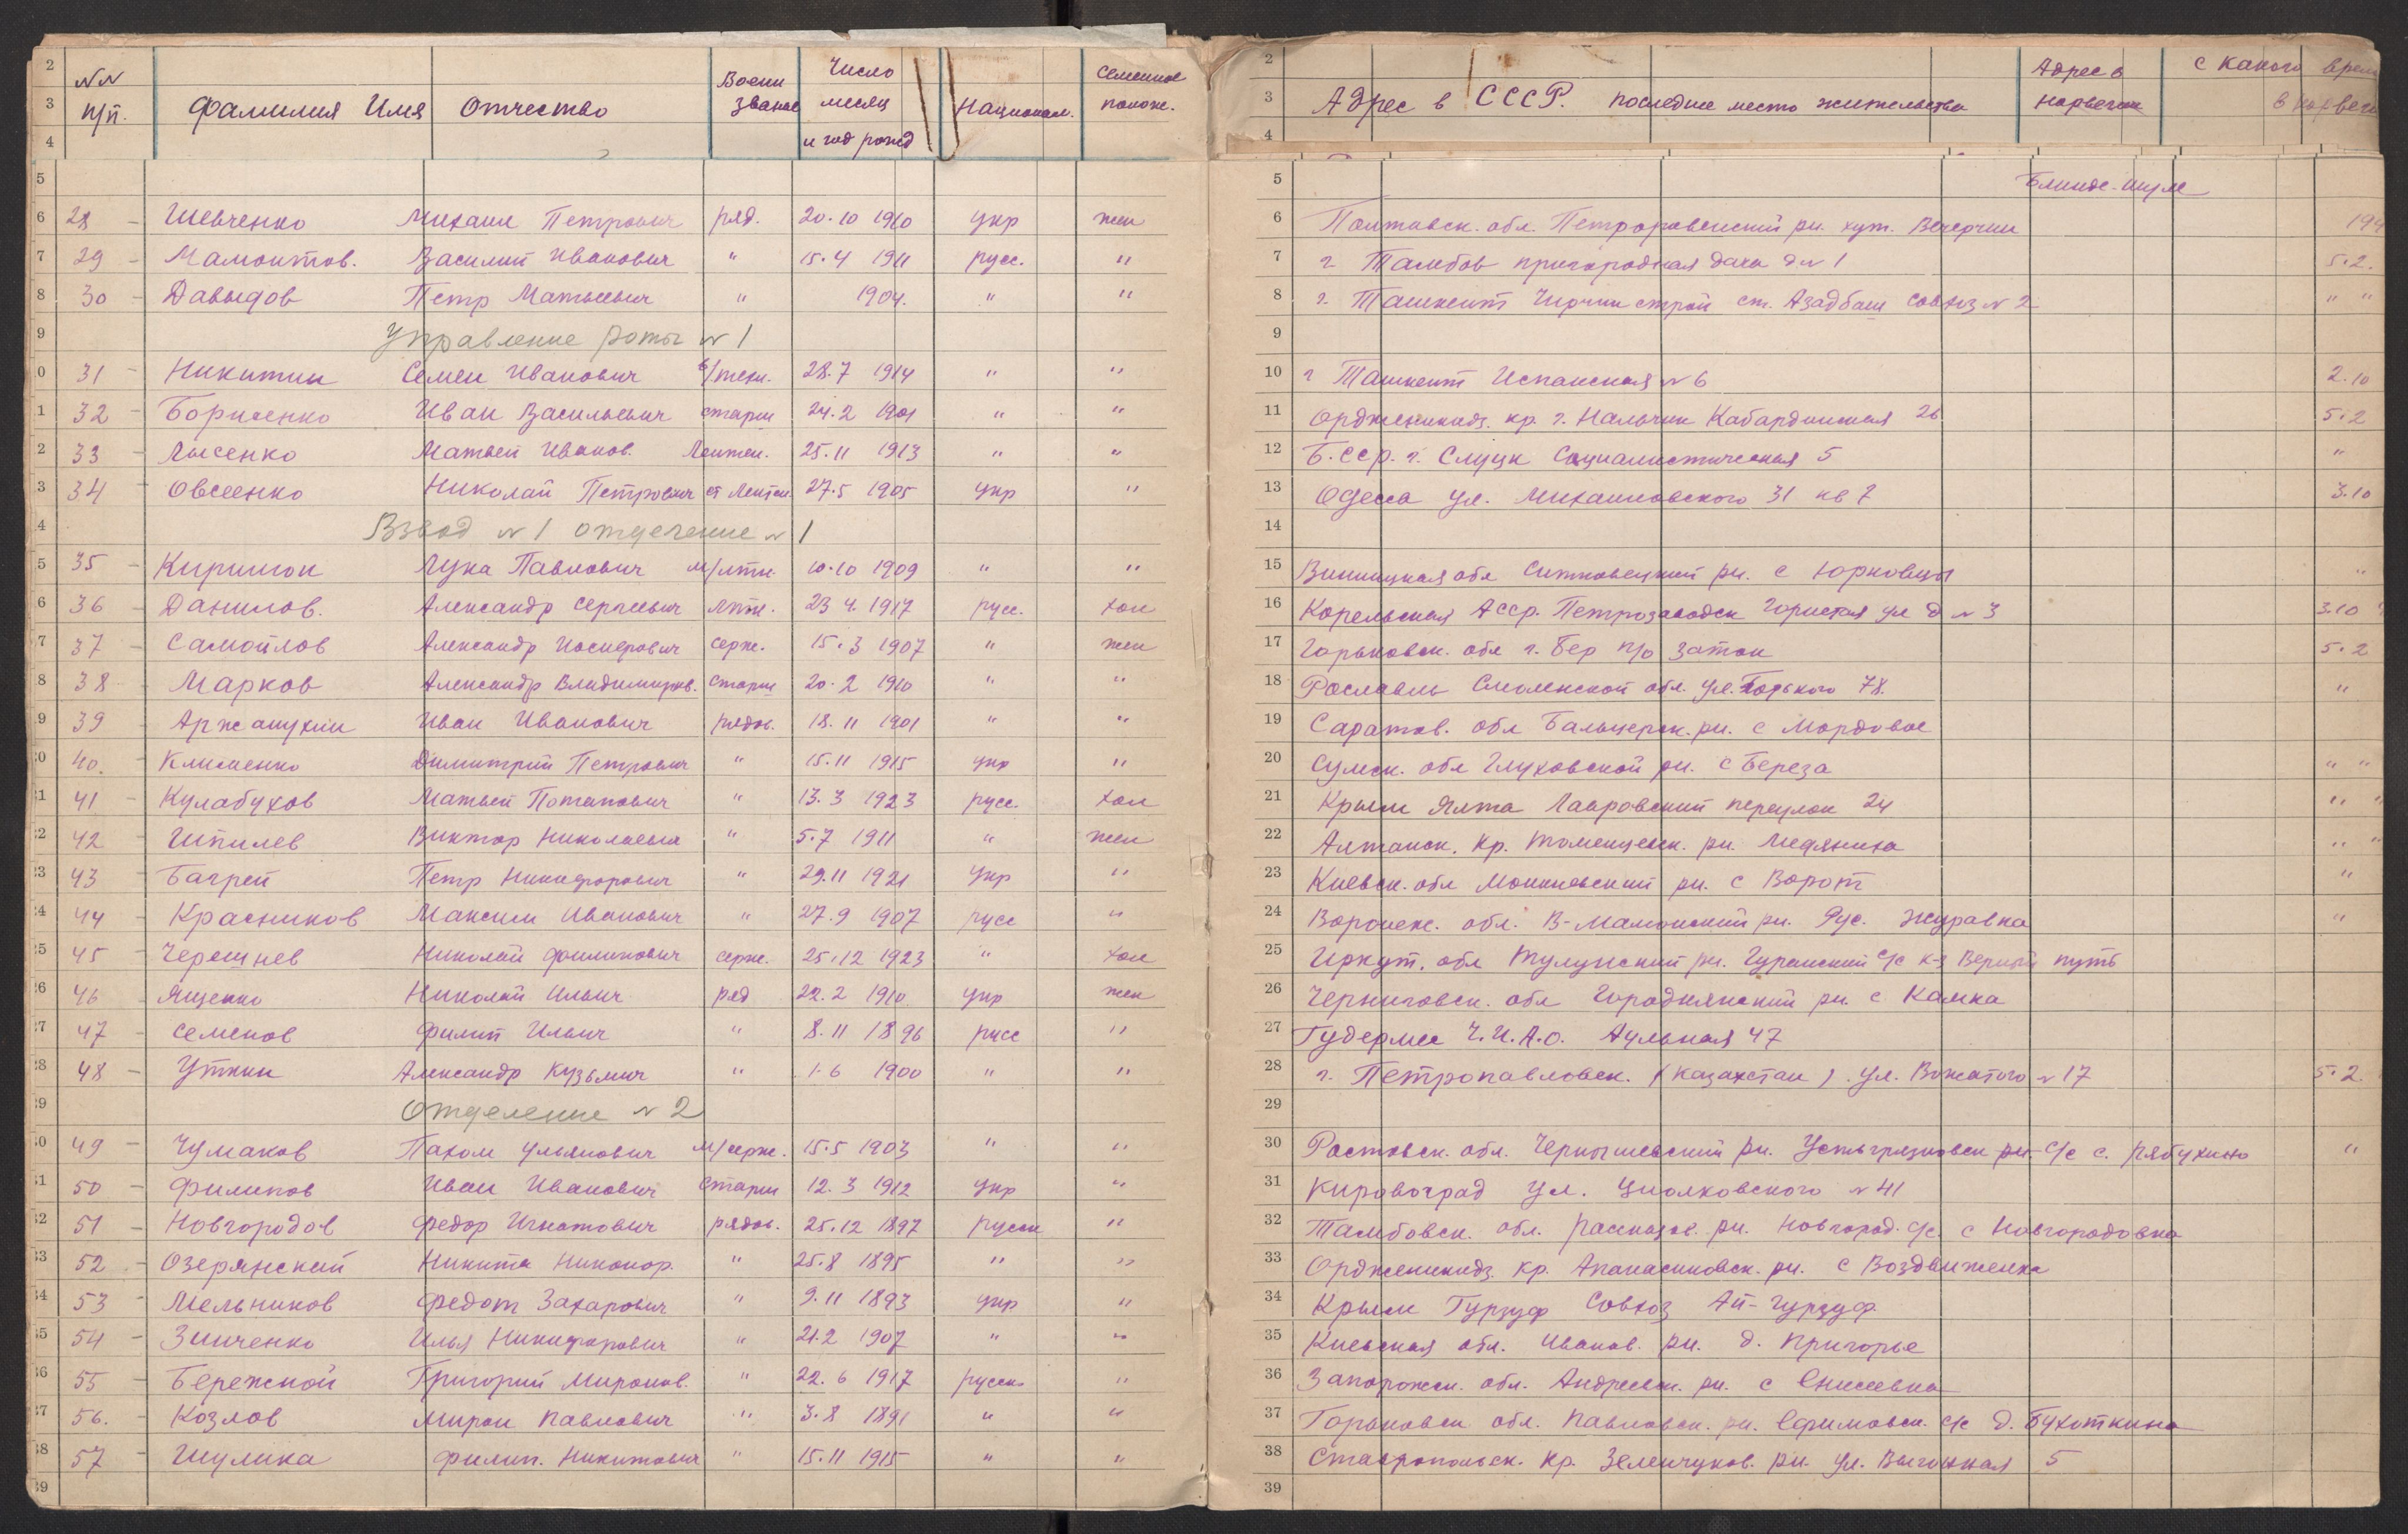 NN п/п. Фамилия Имя Отчество Воени звание Число месяц и год рожд Национал. Семейное полож. Адрес в СССР. последнее место жительства Адрес в Норвегии с какого врем в Норвеги
28 - Шевченко Михаил Петрович ряд. 20.10 1910 укр жен Полтавск. обл. рн. хут. 194
29 - Мамонтов. Василий Иванович " 15.4 1911 русс. " г. Тамбов пригородная дача д N 1 5.2.
30 - Давыдов Петр Матвеевич " 1904. " " г. Ташкент Чирчик строй ст. Азадбаш совхоз N 2 " "
Управление роты N 1
31 - Никитин Семен Иванович в/техн. 28.7 1914 " " г Ташкент Испанская N 6 2.10
32 - Борисенко Иван Васильевич старш 24.2 1901 " " Орджоникидз. кр. г. Нальчик Кабардинская 26 5.2
33 - Лысенко Матвей Иванов. Лейтен. 25.11 1913 " " Б.ССР. г. Слуцк Социалистическая 5 "
34 - Овсеенко Николай Петрович ст Лейтен. 27.5 1905 укр " Одесса ул. Михайловского 31 кв 7 3.10
Взвод N 1 отделение N 1
35 - Киришок Лука Павлович м/лтн. 10.10 1909 " " Винницкая обл Ситковецкий рн. с Юрковцы "
36 - Данилов. Александр Сергеевич лтн. 23 4. 1917 русс. хол Корельская АССР. Петрозаводск ул д N 3 3.10
37 - Самойлов Александр Иосифович серж. 15.3 1907 " жен Горьковск. обл г. Бор п/о Затон 5.2
38 - Марков Александр Владимиров. старш 20.2 1910 " " Рославль Смоленской обл. ул. Горького 78. "
39 - Аржанухин Иван Иванович рядов. 18.11 1901 " " Саратов. обл Бальцерск. рн. с Мордовое
40. - Клименко Димитрий Петрович " 15.11 1915 укр " Сумск. обл Глуховской рн. с Береза " "
41 - Кулабухов Матвей Потапович " 13.3 1923 русс. хол Крым Ялта Лавровский переулок 24 " "
42 - Шпилев Виктор Николаевич " 5.7 1911 " жен Алтайск. кр. рн. " "
43 - Багрей Петр Никифорович " 29.11 1921 укр " Киевск. обл рн. с Ворот "
44 - Красников Максим Иванович " 27.9 1907 русс " Воронеж. обл. В-Мамонский рн. Журавка "
45 - Черешнев Николай Филипович серж. 25.12 1923 " хол Иркут. обл Тулунский рн. Гуранский с/с к-з Верный путь
46 - Ященко Николай Ильич ряд 22.2 1910. укр жен Черниговск. обл Городнянский рн. с Камка
47 - Семенов Филип Ильич " 8.11 1896 русс " Гудермес Ч.И.А.О. Аульная 47
48 - Уткин Александр Кузьмич " 1.6 1900 " " г. Петропавловск. (Казахстан). ул. Вожатого N 17 5.2.
Отделение N 2
49 - Чумаков Пахом Ульянович м/серж. 15.5 1903 " " Ростовск. обл. Чернышевский рн. с/с с. Рябухино "
50 - Филипов Иван Иванович старш 12.3 1912 укр " Кировоград ул. Циолковского N 41
51 - Новгородов Федор Игнатович рядов. 25.12 1897 русск " Тамбовск. обл. Рассказов. рн. Новгород. с/с. с Новгородовка
52 - Озерянский Никита Никонор. " 25.8 1895 " " Орджоникидз. кр. Апанасиновск. рн. с Воздвиженка
53 - Мельников Федот Захарович " 9.11 1893 укр " Крым Гурзуф Совхоз Ай-Гурзуф
54 - Зинченко Илья Никифорович " 21.2 1907 " " Киевская обл. Иванов. рн. д. Пригорье
55 - Бережной Григорий Миронов. " 22.6 1917 русск " Запорожск. обл. Андреевск. рн. с Елисеевка
56. - Козлов Мирон Павлович " 3.8 1891 " " Горьковск обл. Павловск. рн. Ефимовск. с/с д. Бухоткино
57 - Шулика Филип. Никитович " 15.11 1915 " " Ставропольск. кр. Зеленчуков. рн. ул. Выгонная 5